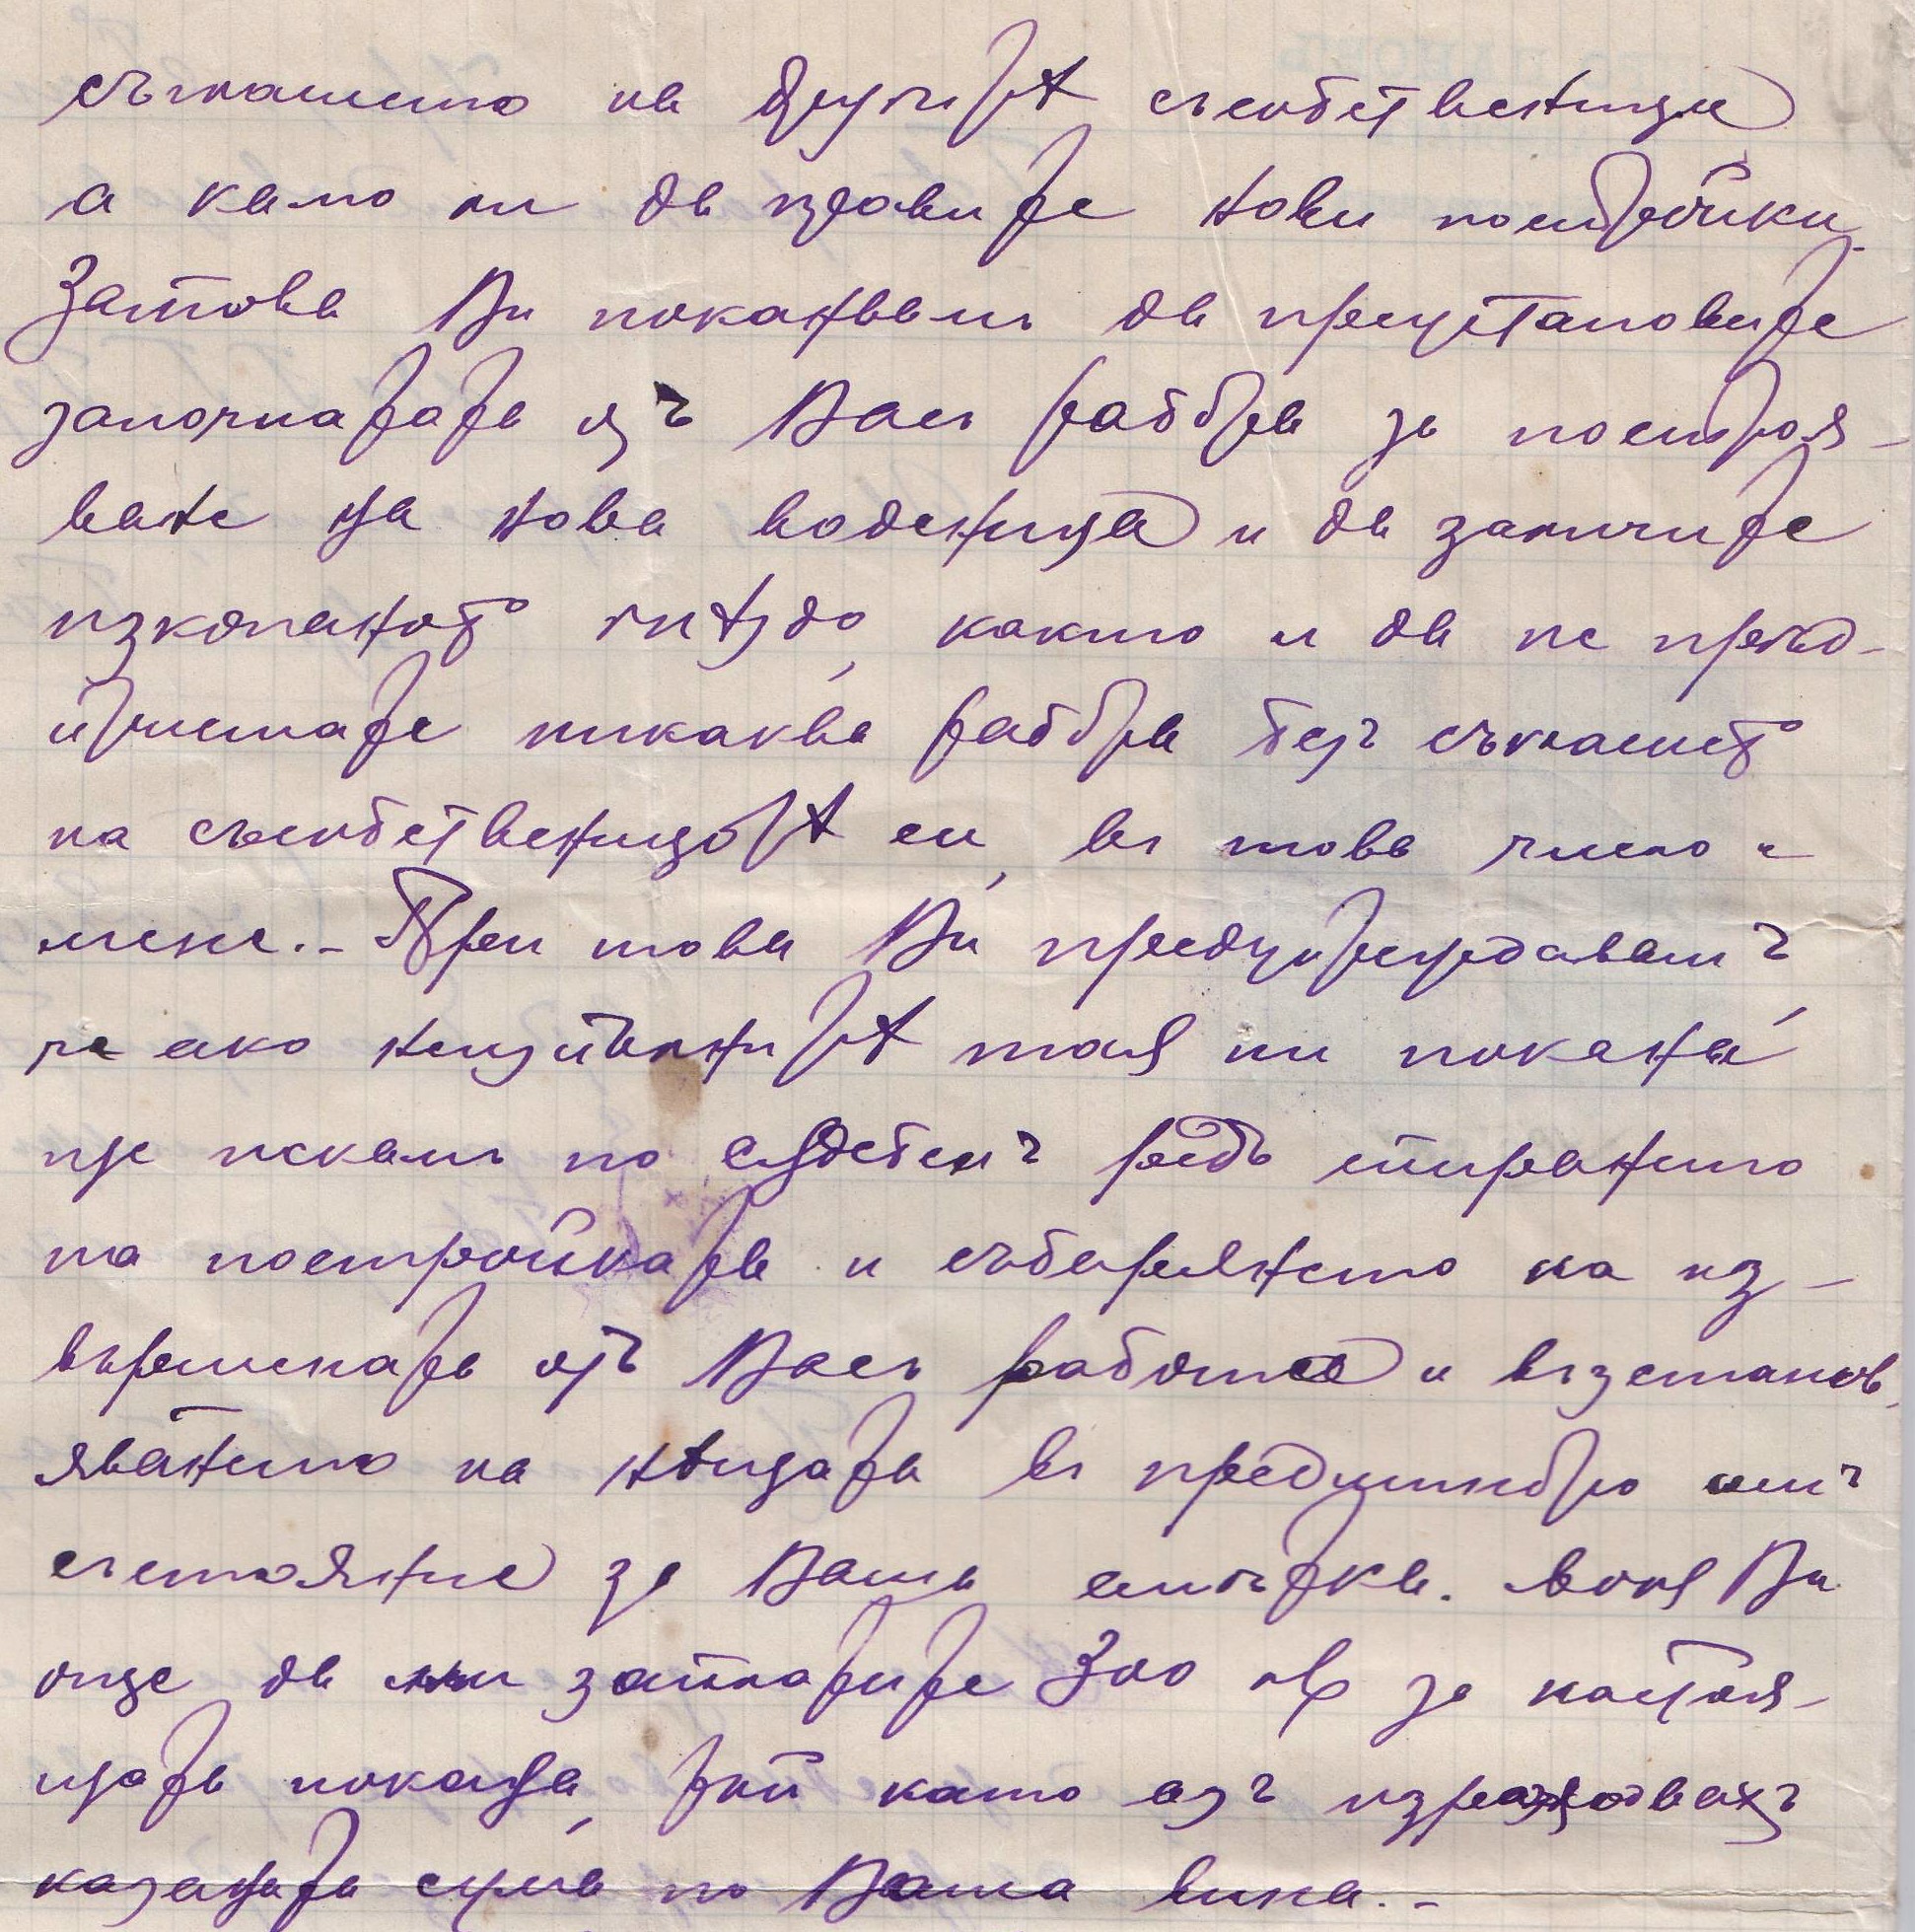 съгласието на другитѣ съсобственици
а камо ли да правите нови постройки.
Затова Ви поканвамъ да преустановите
започнатата отъ Васъ работа за построя-
ване на нова воденица и да заличите
изкопаното гнѣздо, както и да не пред-
приемате никаква работа безъ съгласието
на съсобственицитѣ си, въ това число и
мене.- При това Ви предупреждавамъ
че ако неизпълните тая ми покана,
ще искамъ по сѫдебенъ редъ спирането
на постройката и събарянето на из-
вършената отъ Васъ работа и възстанов-
яването на нѣщата въ предишното имъ
състояние за Ваша смѣтка. Моля Ви
още да ми заплатите 300 лв за настоя-
щата покана, тъй като азъ изразходвахъ
казаната сума по Ваша вина.-